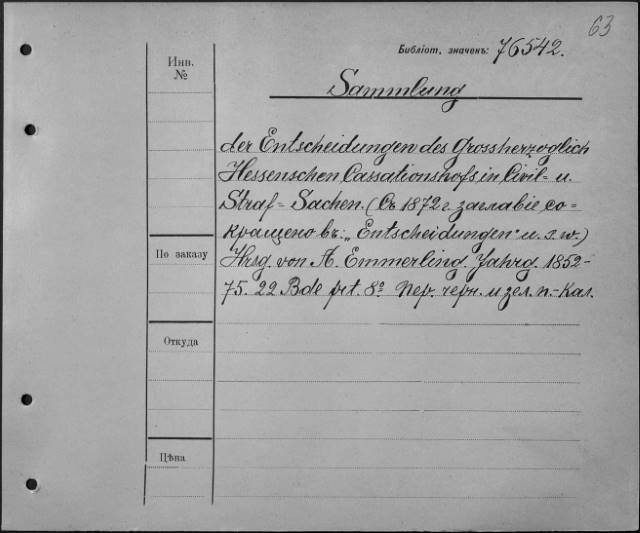 63
Библіот. значенъ: 76542.
Инв.
№
Sammlung
der Entscheidungen des Grossherzoglich
Hessenschen Cassationshofs in Civil- u.
Straf- Sachen. (Съ 1872 г. заглавіе со-
кращено въ: „Entscheidungen" u. s. w.)
По заказу
Hrsg. von A. Emmerling. Jahrg. 1852-
75. 22 Bde 8º Пер. черн. и зел. п.-кал.
Откуда
Цѣна